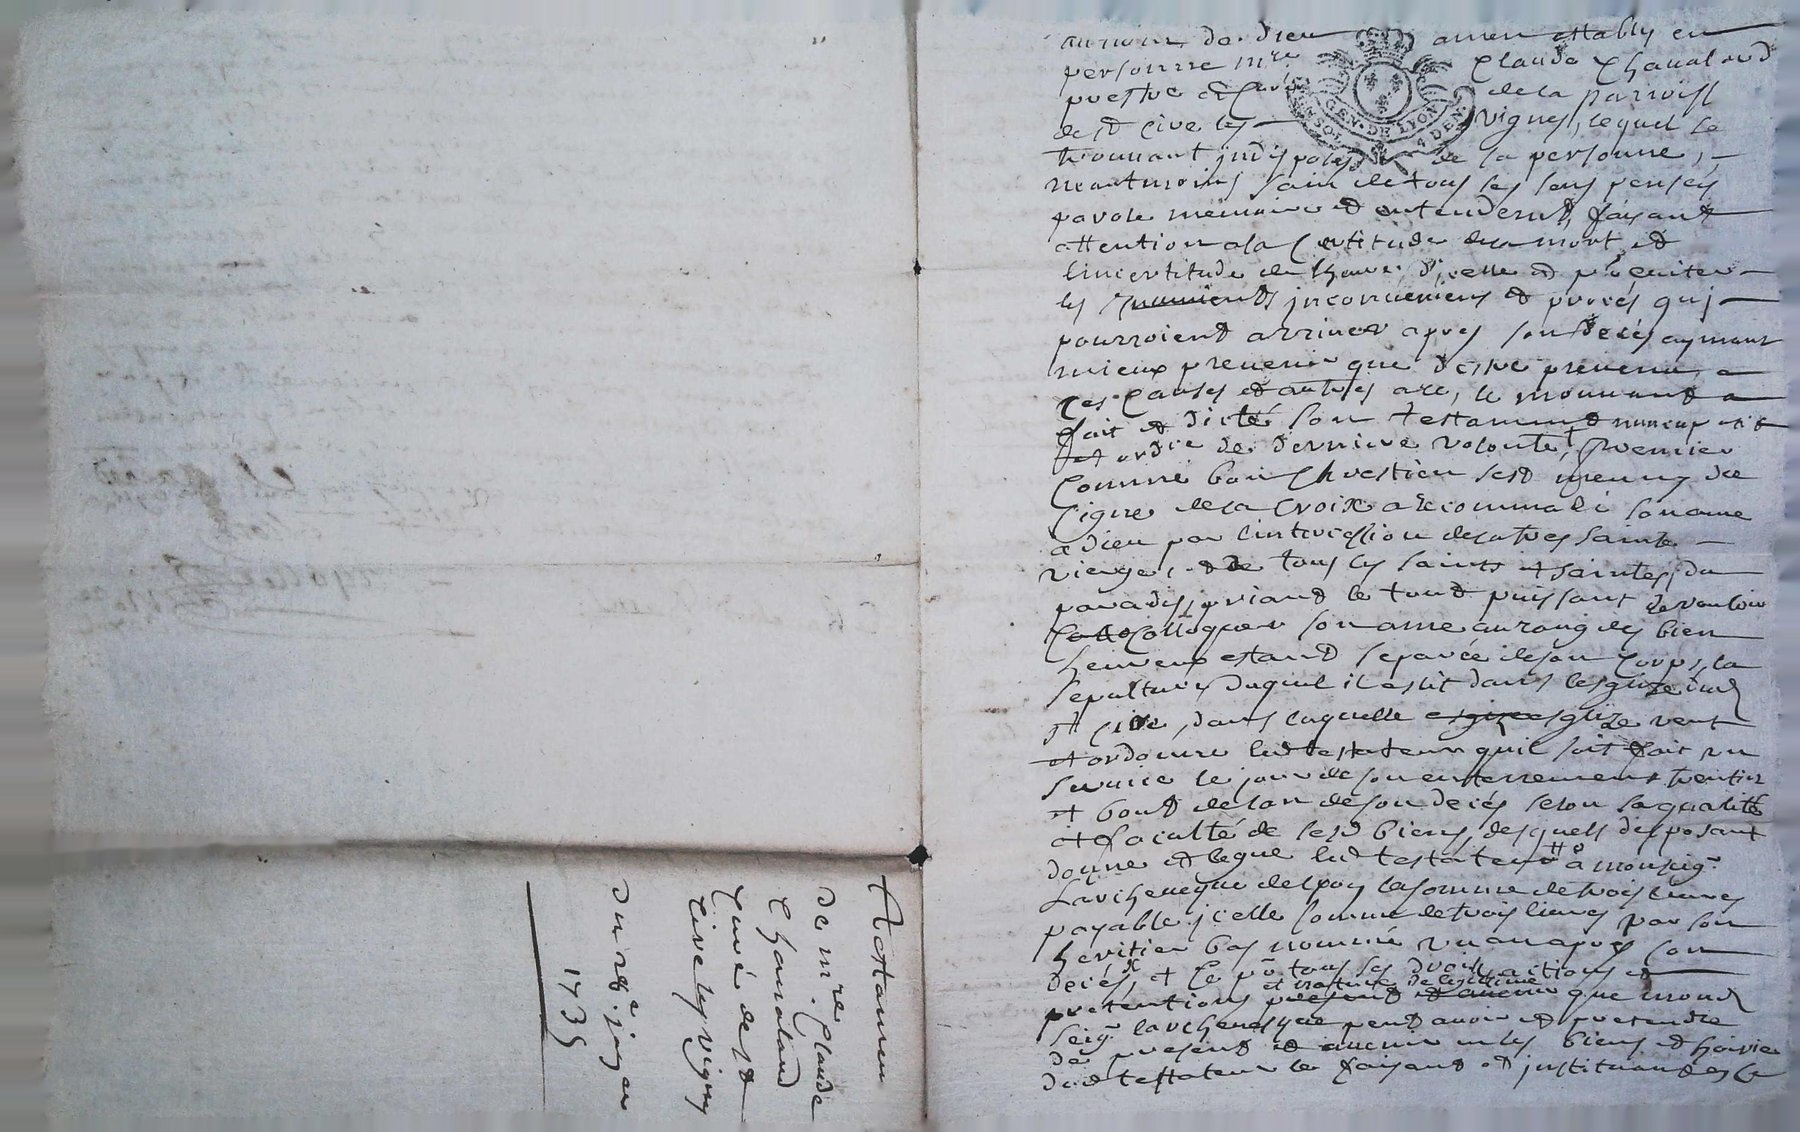 au nom de dieu amen estably en
personne mre Claude Chanaland
prestre et Curé de la parroisse
de st Cire les vignes, lequel se
trouvant indisposé de sa personne,
neantmoins sain de tous ses sens pensées
parole memoire et entendemt, faisant
attention a la Certitude de la mort et
lincertitude de lheure d'icelle et pr eviter
les inconveniens et procés qui
pourroient arriver apres son decés aymant
mieux prevenir que destre prevenu, a
Ces Causes et autres a ce, le mouvant a
fait et dicté son testament nuncupatif
et ordce de derniere volonté, premier
Comme bon Chrestien sest muny du
signe de la Croix a recommandé son ame
a dieu par lintercession de la tres sainte
vierge, et de tous les saints et saintes, du
paradis, priant le tout puissant de vouloir
Colloquer son ame au rang des bien
heureux estant separée de son Corps, la
sepulture duquel il eslit dans lesglize dud
st Cire, dans laquelle esglize veut
et ordonne led testateur quil soit fait un
service le jour de son enterrement trentin
et bout de lan de son decés selon sa qualité
et faculté de sesd biens, desquels disposant
donne et legue led testateur a monseigr
Larcheveque de lyon la somme de trois livres
payable icelle somme de trois livres par son
heritier bas nommé un an apres son
decés, et ce pr tous ses droits actions et
et nature de legitime
pretentions que mond
seigr larcheveque peut avoir et pretendre
de present et avenir en les biens et hoirie
dud testateur le faisant et instituant en ce
Testamen
de mre. Claude
Chanaland
Curé de st
Cire les vignes
du 28e. janer
1735
GEN. DE LYON